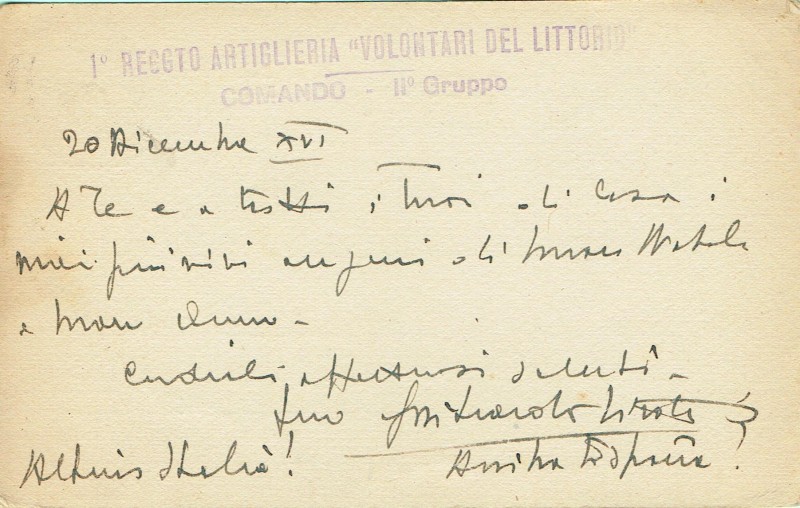 1º REGGTO ARTIGLIERIA "VOLONTARI DEL LITTORIO"
COMANDO - IIº Gruppo
20 Dicembre XVI
A Te e a tutti i Tuoi di Casa i
miei più vivi auguri di buon Natale
e buon Anno -
Cordiali affettuosi saluti -
tuo
Arriba España!